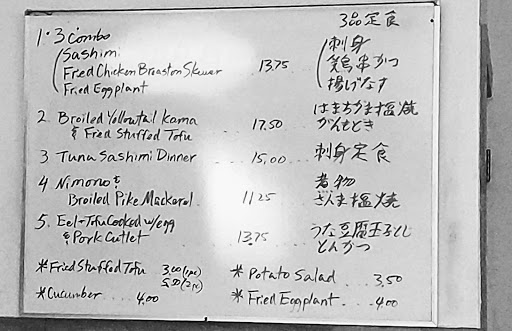 3品定食
1. 3 Combo
Sashimi 刺身
Fried Chicken Breast on Skewer 13.75 鶏串かつ
Fried Eggplant 揚げなす
2 Broiled Yellowtail Kama はまちかま塩焼
& Fried Stuffed Tofu ... 17.50 がんもどき
3 Tuna Sashimi Dinner ... 15.00 刺身定食
4 Nimono & 煮物
Broiled Pike Mackarel. 11.25 さんま塩焼
5. Eel+Tofu Cooked w/egg うな豆腐玉子とじ
& Pork Cutlet ... 13.75 とんかつ
*Fried Stuffed Tofu 3.00(1pc)
5.50(2pc)
*Cucumber .... 4.00
*Potato Salad ... 3.50
*Fried Eggplant .. 4.00